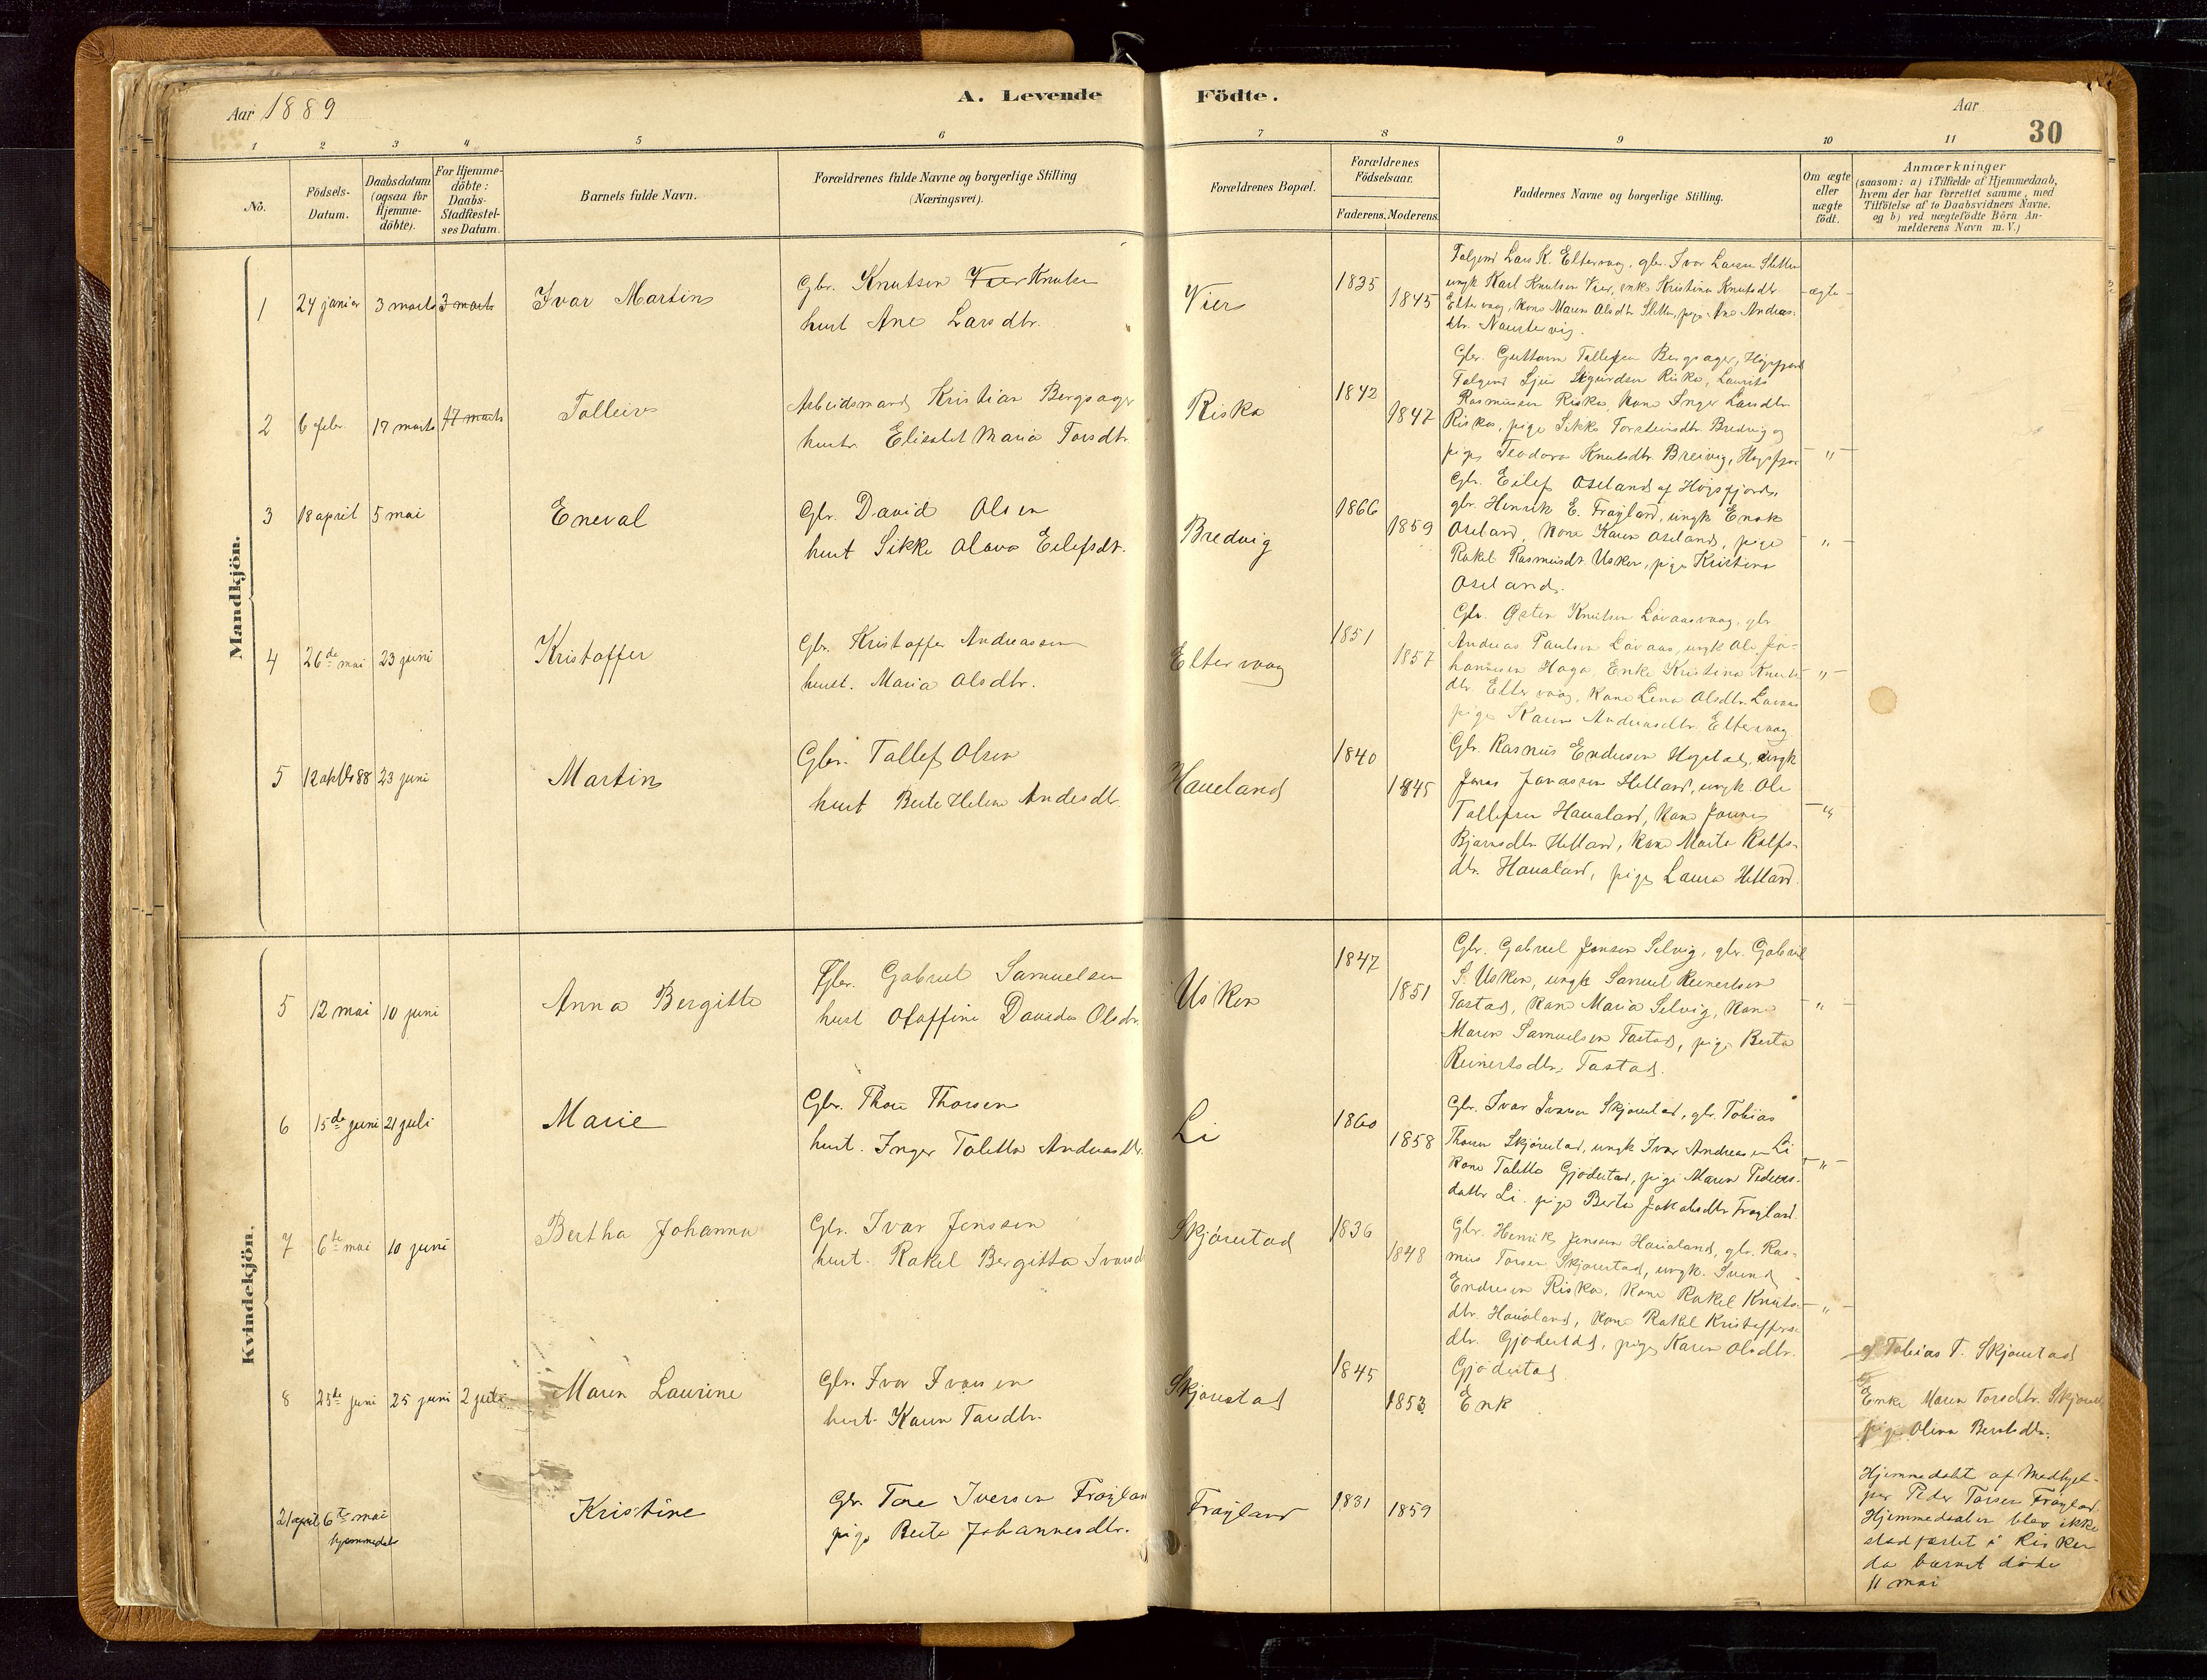 Aar 1889
A. Levende Födte.
Aar
30
1 2 3 4 5 6 7 8 9 10 11
No.
Födsels-Datum.
Daabsdatum (ogsaa for Hjemme-döbte).
For Hjemme-döbte: Daabs-Stadfæstel-ses Datum.
Barnets fulde Navn.
Forældrenes fulde Navne og borgerlige Stilling (Næringsvei).
Forældrenes Bopæl.
Forældrenes Födselsaar.
Faderens. Moderens.
Faddernes Navne og borgerlige Stilling.
Om ægte eller uægte födt.
Anmærkninger
(saasom: a) i Tilfælde af Hjemmedaab,
hvem der har forrettet samme, med
Tilföielse af to Daabsvidners Navne.
og b) ved uægtefödte Börn An-
melderens Navn m. V.)
Mandkjön.
1 24 januar 3 marts 3 marts Ivar Martin
Gbr. Knutsen Vier Knutsen
hust Ane Larsdtr.
Vier 1835 1845
Lars K. Eltervaag, gbr. Ivar Larsen Sletten
ungk Karl Knutsen Vier, enke Kristina Knutsdtr
Eltervaag, kone Maren Olsdtr Sletten, pige Ane Andreas-
dtr. Naustervig.
ægte
2 6 febr. 17 marts 17 marts Tolleiv
Arbeidsmand Kristian Bergsager
hustr. Elisabet Maria Torsdtr.
Riska 1842 1847
Gbr. Guttorm Tollefsen Bergsager, Høgsfjord
Sigurdsen Riska, Laurits
Rasmussen Riska, kone Inger Larsdtr.
Riska, pige Sikke Torsteinsdtr. Bredvig og
pige Teodora Knutsdtr. Breivig, Høgsfjor
"
3 18 april 5 mai Eneval
Gbr. David Olsen
hust Sikke Olava Eilefsdt.
Bredvig 1866 1859
Gbr. Eilef Oseland af Høgsfjord,
gbr. Henrik E. Frøyland, ungk Enok
Oseland, kone Karen Oseland, pige
Rakel Rasmusdt. Usken, pige Kristina
Oseland.
"
4 26de mai 23 juni Kristoffer
Gbr. Kristoffer Andreassen
hust. Maria Olsdtr.
Eltervaag 1851 1857
Gbr. Østen Knutsen Lavaasvaag, gbr
Andreas Paulsen Lavaas, ungk Ole Jo-
hannesen Haga, Enke Kristina Knuts-
dtr. Eltervaag, kone Lena Olsdtr. Lavaas
pige Karen Andreasdtr. Eltervaag
"
5 23 juni Martin
Gbr. Tollef Olsen
hust Berte Helene Andersdtr.
Haueland 1840 1845
Gbr. Rasmus Endresen Hogstad, ungk
Jonas Jonassen Hetland, ungk. Ole
Tollefsen Haualand, kone
Bjørnsdtr Hetland, kone Marta Rolfs-
dtr. Haualand, pige Laura Hetland.
"
Kvindekjön.
5 12 mai 10 juni Anna Bergitte
Gbr. Gabriel Samuelsen
hust Olaffine Davida Olsdtr.
Usken 1847 1851
Gbr. Gabriel Jonsen Selvig, gbr. Gabriel
S. Usken, ungk Samuel Reinertsen
Tastad, kone Maria Selvig, kone
Maren Samuelsen Tastad, pige Berta
Reinertsdtr. Tastad.
"
6 15de juni 21 juli Marie
Gbr. Thore Thorsen
hust. Inger Taletta Andreasdtr.
Li 1860 1858
Gbr. Ivar Ivarsen Skjørestad, gbr. Tobias
Thorsen Skjørestad, ungk Ivar Andreasen Li
kone Taletta Gjødestad, pige Maren Peders-
datter Li, pige Berta Jakobsdtr Frøyland.
"
7 6te mai 10 juni Bertha Johanna
Gbr. Ivar Jensen
hust. Rakel Bergitta Ivarsd
Skjørestad 1836 1848
Gbr. Henrik Jensen Haualand, gbr. Ras-
mus Torsen Skjørestad, ungk. Svend
Endresen Riska, kone Rakel Knuts-
dtr. Haualand, kone Rakel Kristoffers-
dtr. Gjødestad, pige Karen Olsdtr.
Gjødestad
"
8 25de juni 25 juni 2 juli Maren Laurine
Gbr. Ivar Ivarsen
hust. Karen Torsdtr.
Skjørestad 1845 1853
Enk
Tobias T. Skjørestad
Enke Maren Torsdtr. Skjørest
pige Olina Berntsdtr.
21 april 6te mai hjemmedøbt Kristine
Gbr. Tore Iversen Frøylan
pige Berte Johannesdtr.
Frøyland 1831 1859
Hjemmedøbt af Medhjel-
per Peder Torsen Frøyland.
Hjemmedaaben blev ikke
stadfæstet i Kirken
da barnet døde
11 mai